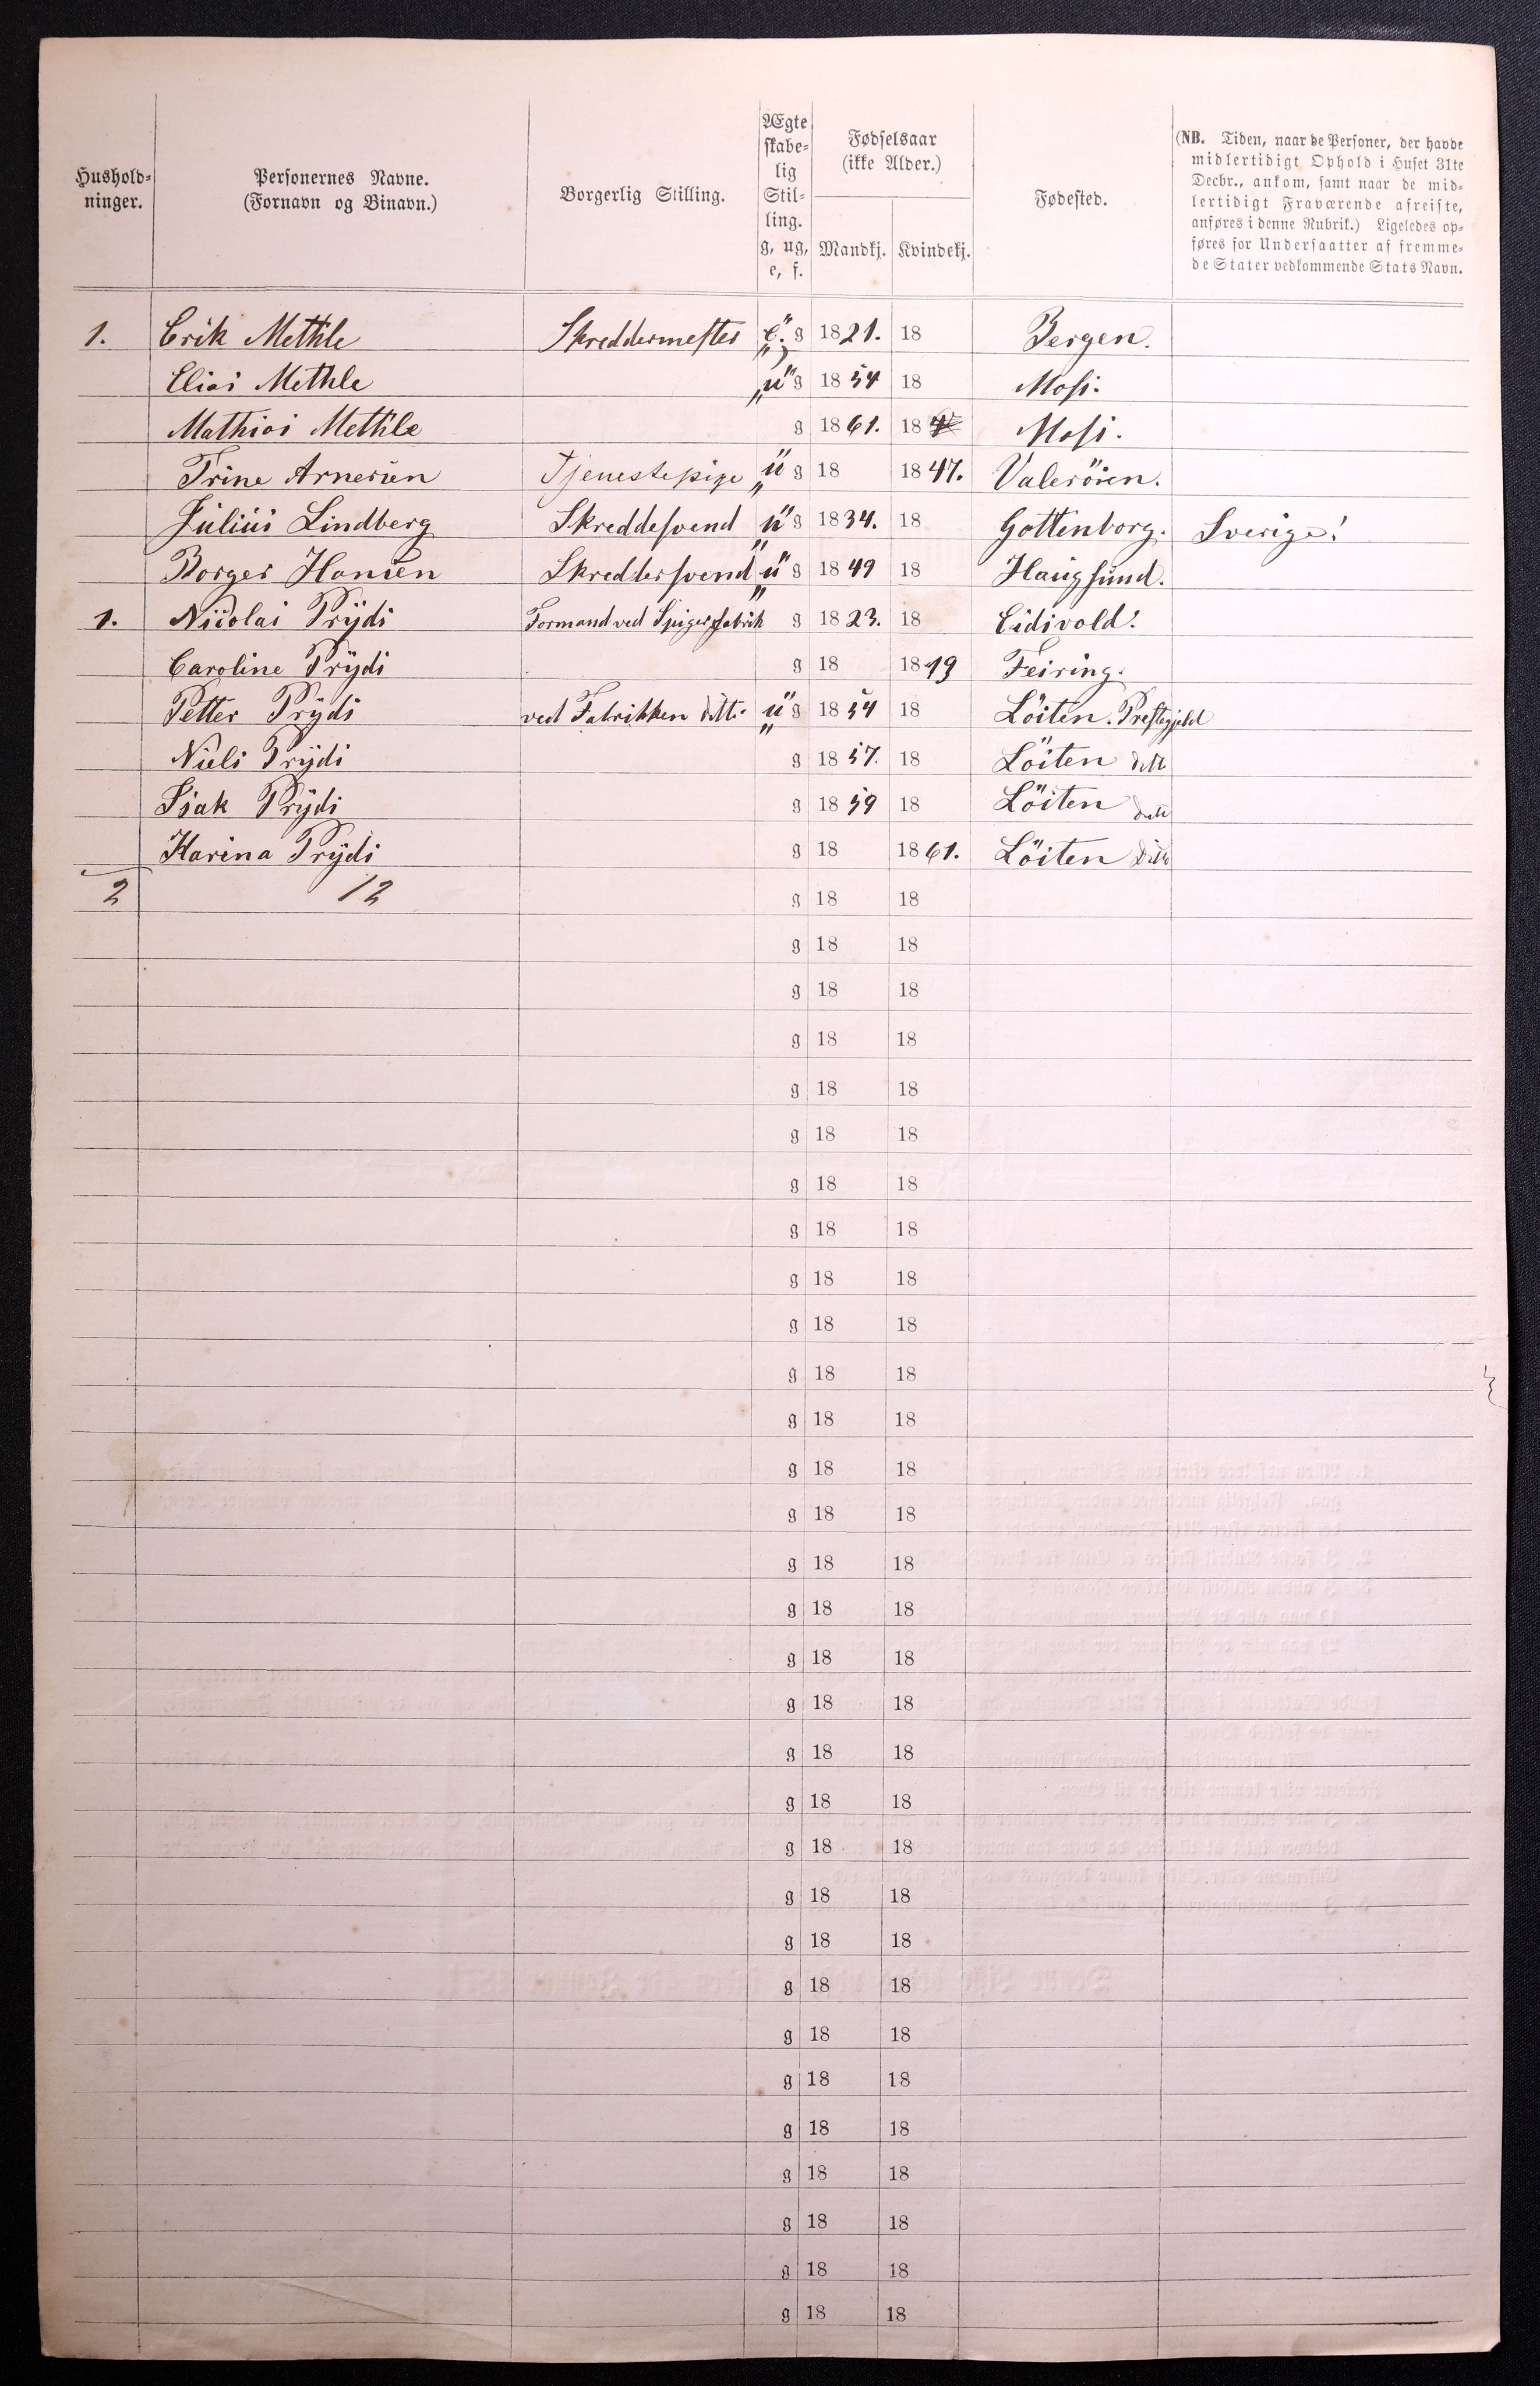 Hushold-
ninger.
Personernes Navne.
(Fornavn og Binavn.)
Borgerlig Stilling.
Ægte
skabe-
lig
Stil-
ling.
g, ug,
e, f.
Fødselsaar
(ikke Alder.)
Mandkj. Kvindekj.
Fødested.
(NB. Tiden, naar de Personer, der havde
midlertidigt Ophold i Huset 31te
Decbr., ankom, samt naar de mid-
lertidigt Fraværende afreiste,
anføres i denne Rubrik.) Ligeledes op-
føres for Undersaatter af fremme-
de Stater vedkommende Stats Navn.
1. Erik Methle Skreddermester „e." g 1821. 18 Bergen.
Elias Methle „u" g 1854 18 Moss.
Mathias Methle g 1861. 18 Moss.
Trine Arnesen Tjenestepige „ü g 18 1847. Valeröien.
Julius Lindberg Skreddesvend „ü g 1834. 18 Gottenborg. Sverige!
Borger Hansen Skreddersvend „ü g 1849 18 Haugsund.
1. Nicolai Prÿds Formand ved Spigerfabrik g 1823. 18 Eidsvold.
Caroline Prÿds g 18 1819 Feiring.
Petter Prÿds ved Fabrikken ditto „ü g 1854 18 Löiten. Prestegjeld
Niels Prÿds g 1857. 18 Löiten ditto
Isak Prÿds g 1859 18 Löiten ditto
Karina Prÿds g 18 1861. Löiten ditto
2 12 g 18 18
g 18 18
g 18 18
g 18 18
g 18 18
g 18 18
g 18 18
g 18 18
g 18 18
g 18 18
g 18 18
g 18 18
g 18 18
g 18 18
g 18 18
g 18 18
g 18 18
g 18 18
g 18 18
g 18 18
g 18 18
g 18 18
g 18 18
g 18 18
g 18 18
g 18 18
g 18 18
g 18 18
g 18 18
g 18 18
g 18 18